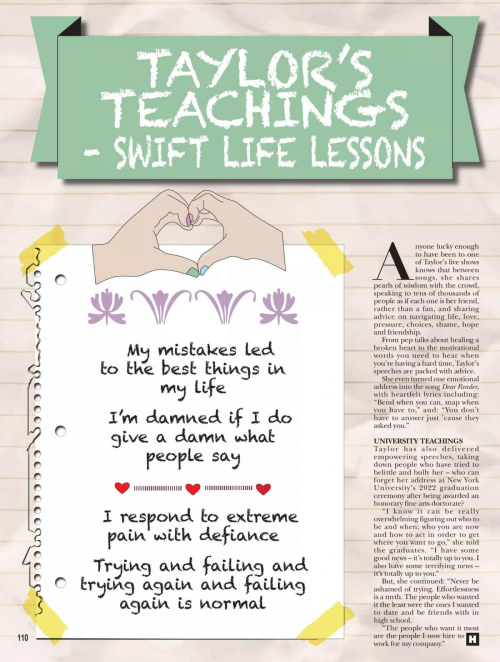 TAYLOR'S
TEACHINGS
- SWIFT LIFE LESSONS
My mistakes led
to the best things in
my life
I'm damned if I do
give a damn what
people say
I respond to extreme
pain with defiance
Trying and failing and
trying again and failing
again is normal
Anyone lucky enough
to have been to one
of Taylor's live shows
knows that between
songs, she shares
pearls of wisdom with the crowd,
speaking to tens of thousands of
people as if each one is her friend,
rather than a fan, and sharing
advice on navigating life, love,
pressure, choices, shame, hope
and friendship.
From pep talks about healing a
broken heart to the motivational
words you need to hear when
you're having a hard time, Taylor's
speeches are packed with advice.
She even turned one emotional
address into the song Dear Reader,
with heartfelt lyrics including:
"Bend when you can, snap when
you have to," and: "You don't
have to answer just 'cause they
asked you."
UNIVERSITY TEACHINGS
Taylor has also delivered
empowering speeches, taking
down people who have tried to
belittle and bully her – who can
forget her address at New York
University's 2022 graduation
ceremony after being awarded an
honorary fine arts doctorate?
"I know it can be really
overwhelming figuring out who to
be and when; who you are now
and how to act in order to get
where you want to go," she told
the graduates. "I have some
good news – it's totally up to you. I
also have some terrifying news –
it's totally up to you."
But, she continued: "Never be
ashamed of trying. Effortlessness
is a myth. The people who wanted
it the least were the ones I wanted
to date and be friends with in
high school.
"The people who want it most
are the people I now hire to
work for my company." H
110